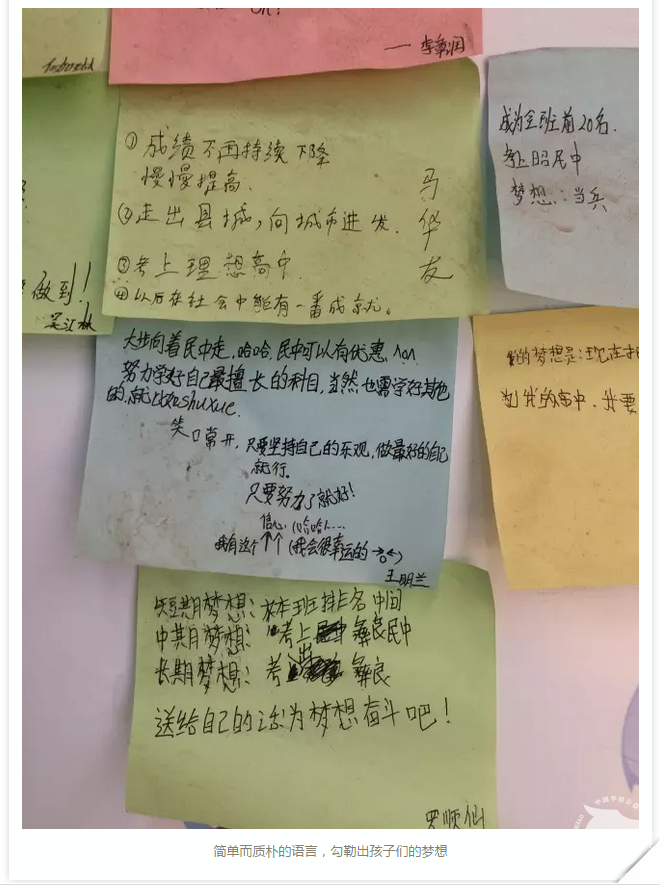 一 李章润
① 成绩不再持续下降
慢慢提高.
② 走出县城，向城市进发.
③ 考上理想高中.
④ 以后在社会中能有一番成就。
马华友
成为全班前20名.
考上昭民中
梦想：当兵
做到！
吴江林
大步向着民中走，哈哈，民中可以有优惠.
努力学好自己最擅长的科目，当然也需学好其他
的，就比如shuxue.
笑口常开，只要坚持自己的乐观，做最好的自己
就行.
只要努力了就好！
信心.(哈哈)....
我有这个↑个(我会很幸运的
王明兰
我的梦想是：现在才
我的高中，我要
短期梦想：在本班排名中间
中期梦想：考上彝良民中
长期梦想：考出彝良
送给自己的话：为梦想奋斗吧！
罗顺仙
简单而质朴的语言，勾勒出孩子们的梦想